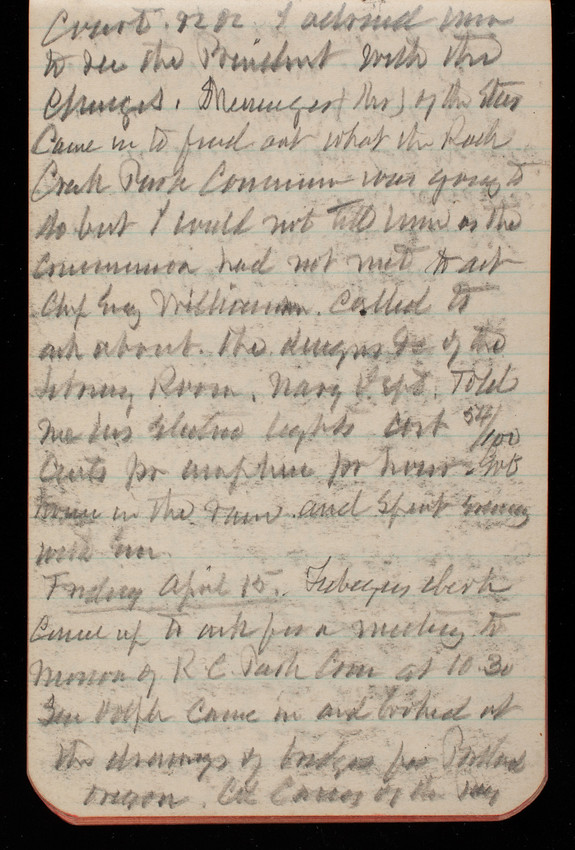 Court &c &c I advised him
to see the President with the
charges. Messenger (Mr) of the Star
Came in to find out what the Rock
Creek Park Commission was going to
do but I would not tell him as the
Commission had not met to act
Chf Eng Williamson called to
ask about the designs &c of the
Library Room, Navy Dept. Told
me his Electric lights cost 54/100
Cents per per hour. Got
home in the rain and spent Evening
with Em
Friday April 15. clerk
came up to ask for a meeting to
morrow of R C Park Com at 10.30
Sen Dolph came in and looked at
the drawings of bridges for Portland
Oregon. Col Carey of the Pay